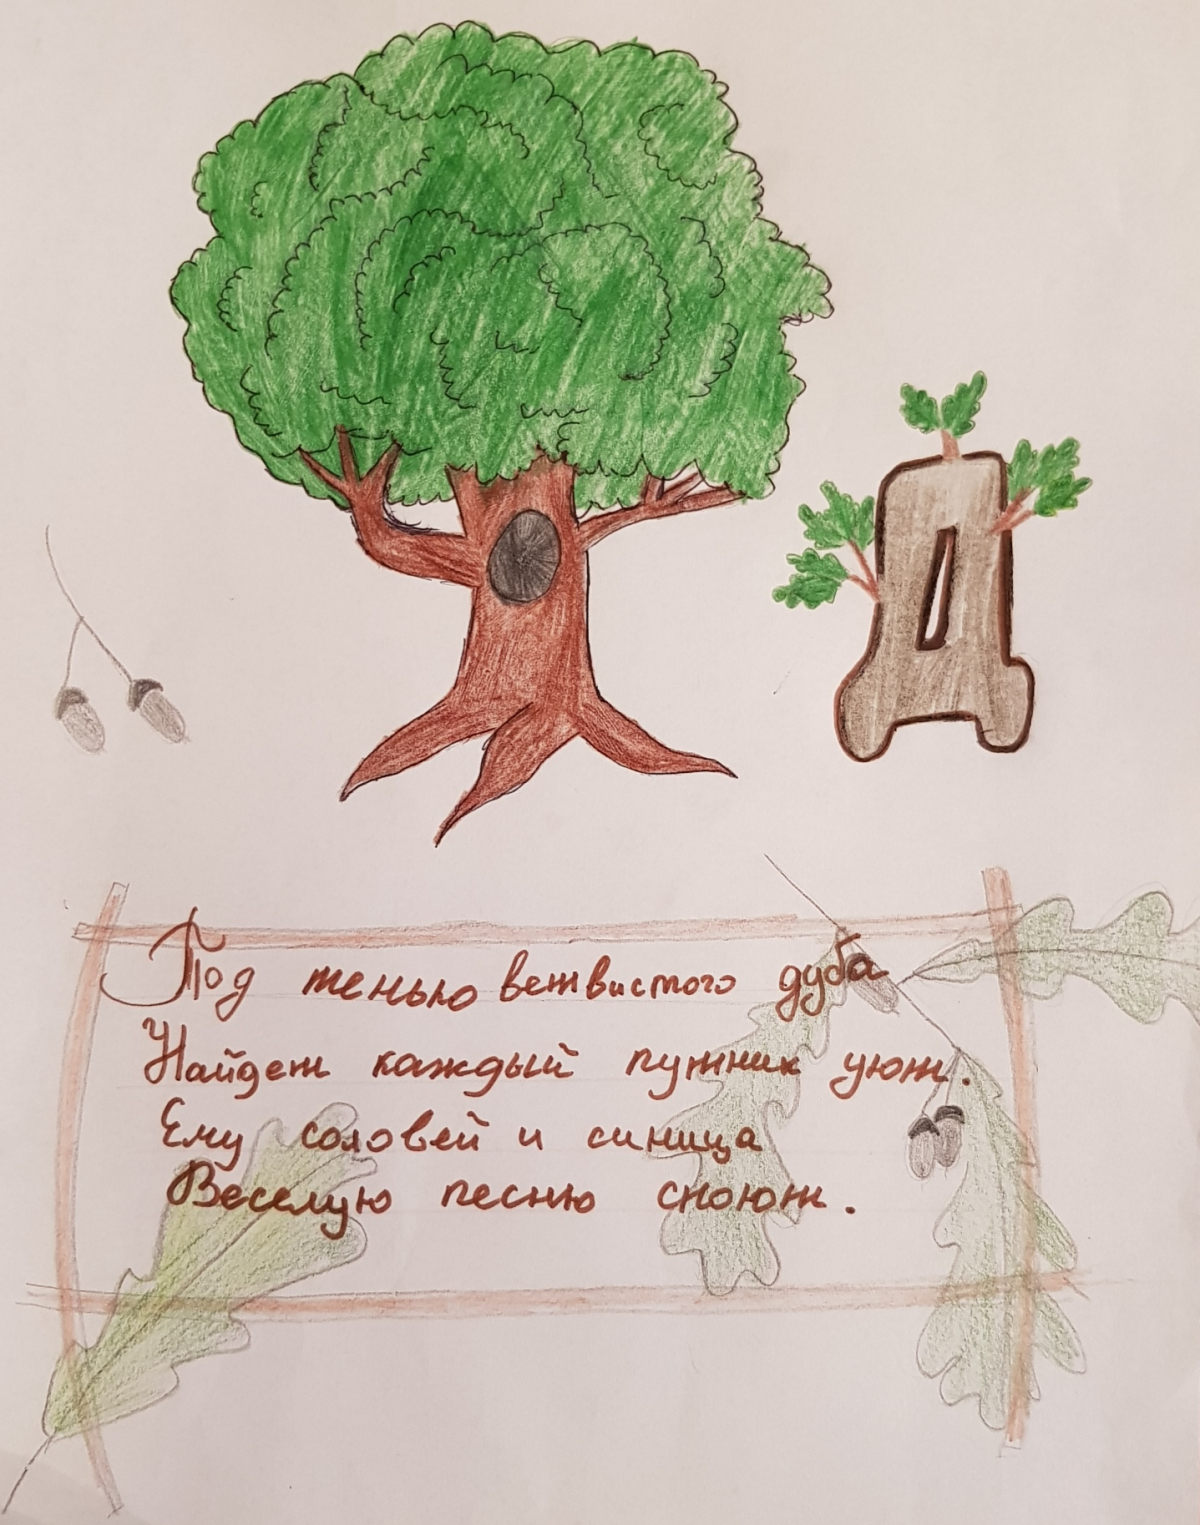 Д
Под тенью ветвистого дуба
Найдет каждый путник уют.
Ему соловей и синица
Веселую песню споют.